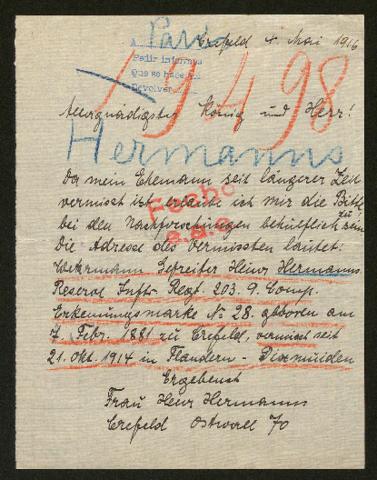 Crefeld 4. Mai 1916
A. Paris
Pedir informes
Que se hace
Devolver
19498
Allergnädigster König und Herr!
Hermanns
Da mein Ehemann seit längerer Zeit
vermisst ist, erlaube ich mir die Bitte
bei den Nachforschungen behülflich zu sein
Fecho
Die Adresse des Vermissten lautet:
Wehrmann Gefreiter Heinr Hermanns
Reserve Inftr Regt. 203. 9. Comp.
Erkennungsmarke № 28. geboren am
7 Febr. 1881 zu Crefeld, vermisst seit
21. Okt. 1914 in Flandern - Dixmuiden
Ergebenst
Frau Heinr Hermanns
Crefeld Ostwall 70